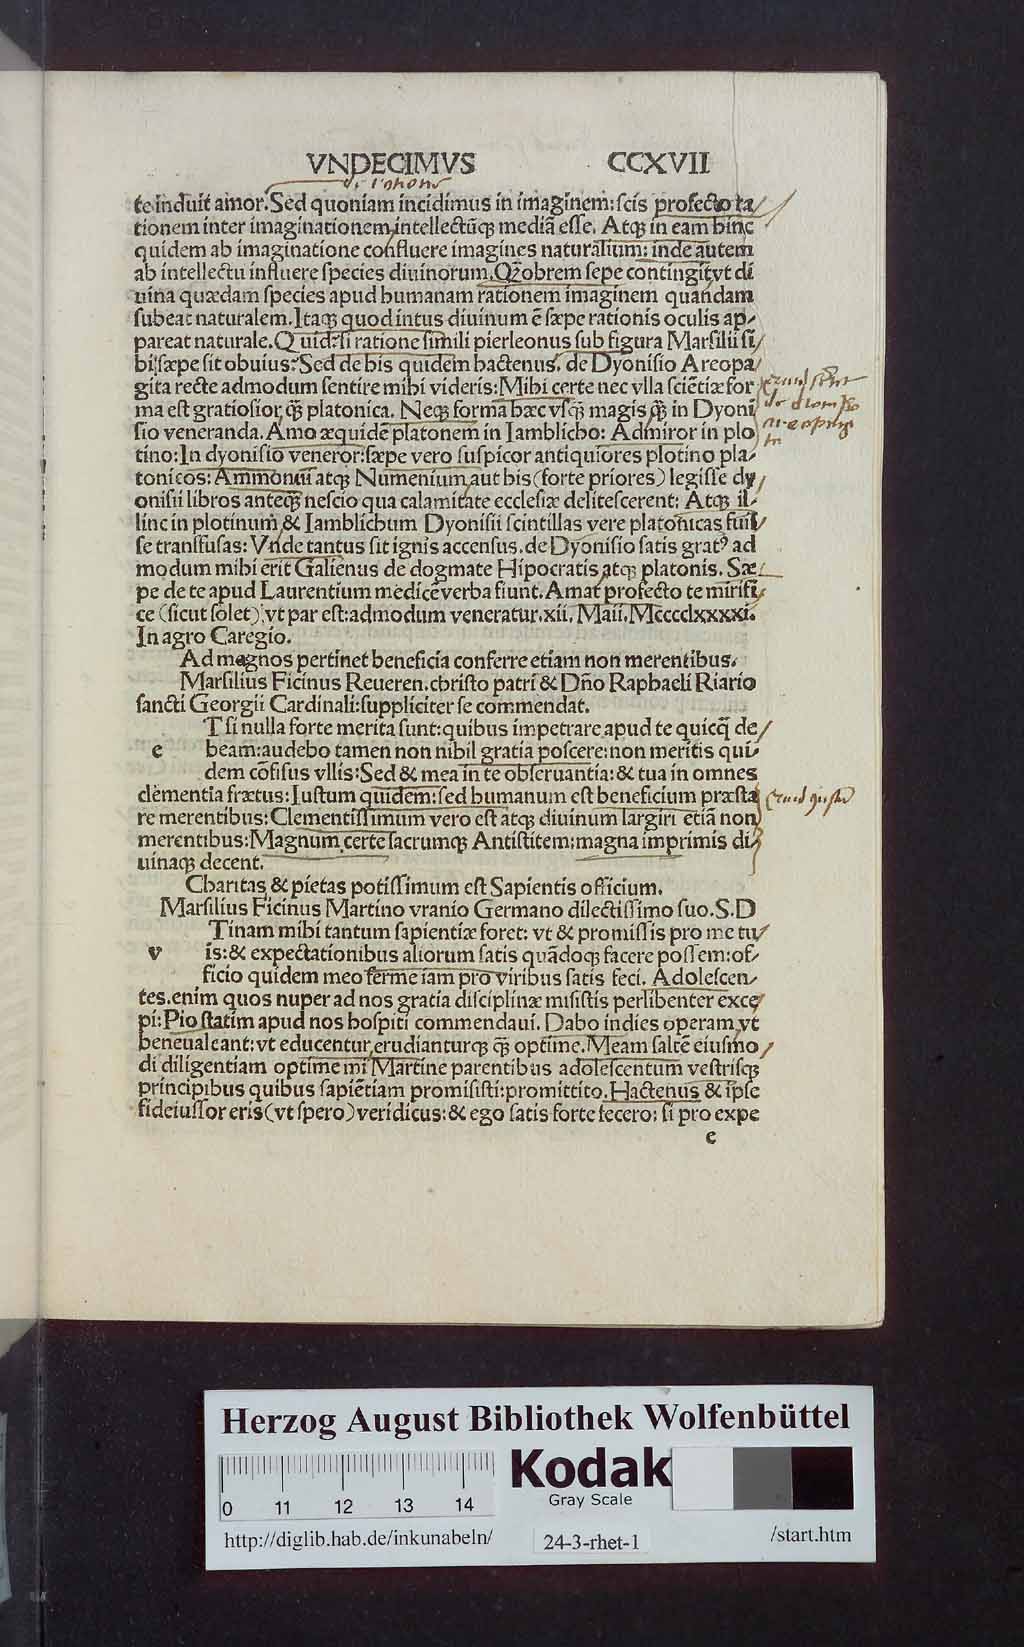 VNDECIMVS CCXVII
te induit amor. Sed quoniam incidimus in imaginem: scis profecto ra
tionem inter imaginationem, intellectũq; mediã esse. Atq; in eam hinc
quidem ab imaginatione confluere imagines naturalium: inde autem
ab intellectu influere species diuinorum. Q̃obrem sepe contingit, vt di
uina quædam species apud humanam rationem imaginem quandam
subeat naturalem. Itaq; quod intus diuinum ẽ sæpe rationis oculis ap-
pareat naturale. Quid? si ratione simili pierleonus sub figura Marsilii si
bi sæpe sit obuius? Sed de his quidem hactenus. de Dyonisio Areopa
gita recte admodum sentire mihi videris: Mihi certe nec vlla sciẽtiæ for
ma est gratiosior q̃ platonica. Neq; forma hæc vsq̃ magis q̃ in Dyoni
sio veneranda. Amo æquidẽ platonem in Iamblicho: Admiror in plo
tino: In dyonisio veneror: sæpe vero suspicor antiquiores plotino pla-
tonicos: Ammoniũ atq; Numenium, aut his (forte priores) legisse dy
onisii libros anteq̃ nescio qua calamitate ecclesiæ delitescerent: Atq; il-
linc in plotinum & Iamblichum Dyonisii scintillas vere platonicas fuis
se transfusas: Vnde tantus sit ignis accensus. de Dyonisio satis gratꝰ ad
modum mihi erit Galienus de dogmate Hipocratis, atq; platonis. Sæ
pe de te apud Laurentium medicẽ verba fiunt. Amat profecto te mirifi
ce (sicut solet) vt par est: admodum veneratur. xii. Maii. Mccccl xxxxi.
In agro Caregio.
Ad magnos pertinet beneficia conferre etiam non merentibus.
Marsilius Ficinus Reueren. christo patri & Dño Raphaeli Riario
sancti Georgii Cardinali: suppliciter se commendat.
T si nulla forte merita sunt: quibus impetrare apud te quicq̃ de
e beam: audebo tamen non nihil gratia poscere: non meritis qui-
dem cõfisus vllis: Sed & mea in te obseruantia: & tua in omnes
clementia frætus: Iustum quidem: sed humanum est beneficium præsta
re merentibus: Clementissimum vero est atq; diuinum largiri etiã non
merentibus: Magnum certe sacrumq; Antistitem: magna imprimis di
uinaq; decent.
Charitas & pietas potissimum est Sapientis officium.
Marsilius Ficinus Martino vranio Germano dilectissimo suo. S. D
Tinam mihi tantum sapientiæ foret: vt & promissis pro me tu
v is: & expectationibus aliorum satis quãdoq; facere possem: of-
ficio quidem meo ferme iam pro viribus satis feci. Adolescen-
tes. enim quos nuper ad nos gratia disciplinæ misistis perlibenter exce
pi: Pio statim apud nos hospiti commendaui. Dabo indies operam, vt
beneualeant: vt educentur, erudianturq; q̃ optime. Meam saltẽ eiusmo
di diligentiam optime mi Martine parentibus adolescentum vestrisq;
principibus quibus sapiẽtiam promisisti: promittito. Hactenus & ipse
fideiussor eris (vt spero) veridicus: & ego satis forte fecero: si pro expe
e
Herzog August Bibliothek Wolfenbüttel
0 11 12 13 14
Kodak
Gray Scale
http://diglib.hab.de/inkunabeln/ 24-3-rhet-1 /start.htm